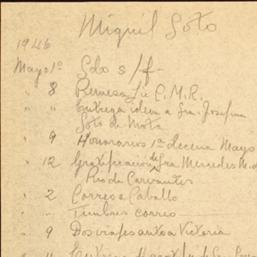 Miguel Soto
1946
Mayo 1º Sdo s/f.
" 8 Remesa Lic E. M. R.
" " Entrega idem a Sra. Josefina
Soto de Mota
" 9 Honorarios 1ª decena Mayo
" 12 Gratificación de Sra Mercedes M. de
Rio de Cervantes
" 2 Correo a Caballo
" " Timbres correo
" 9 Dos viajes auto a Victoria